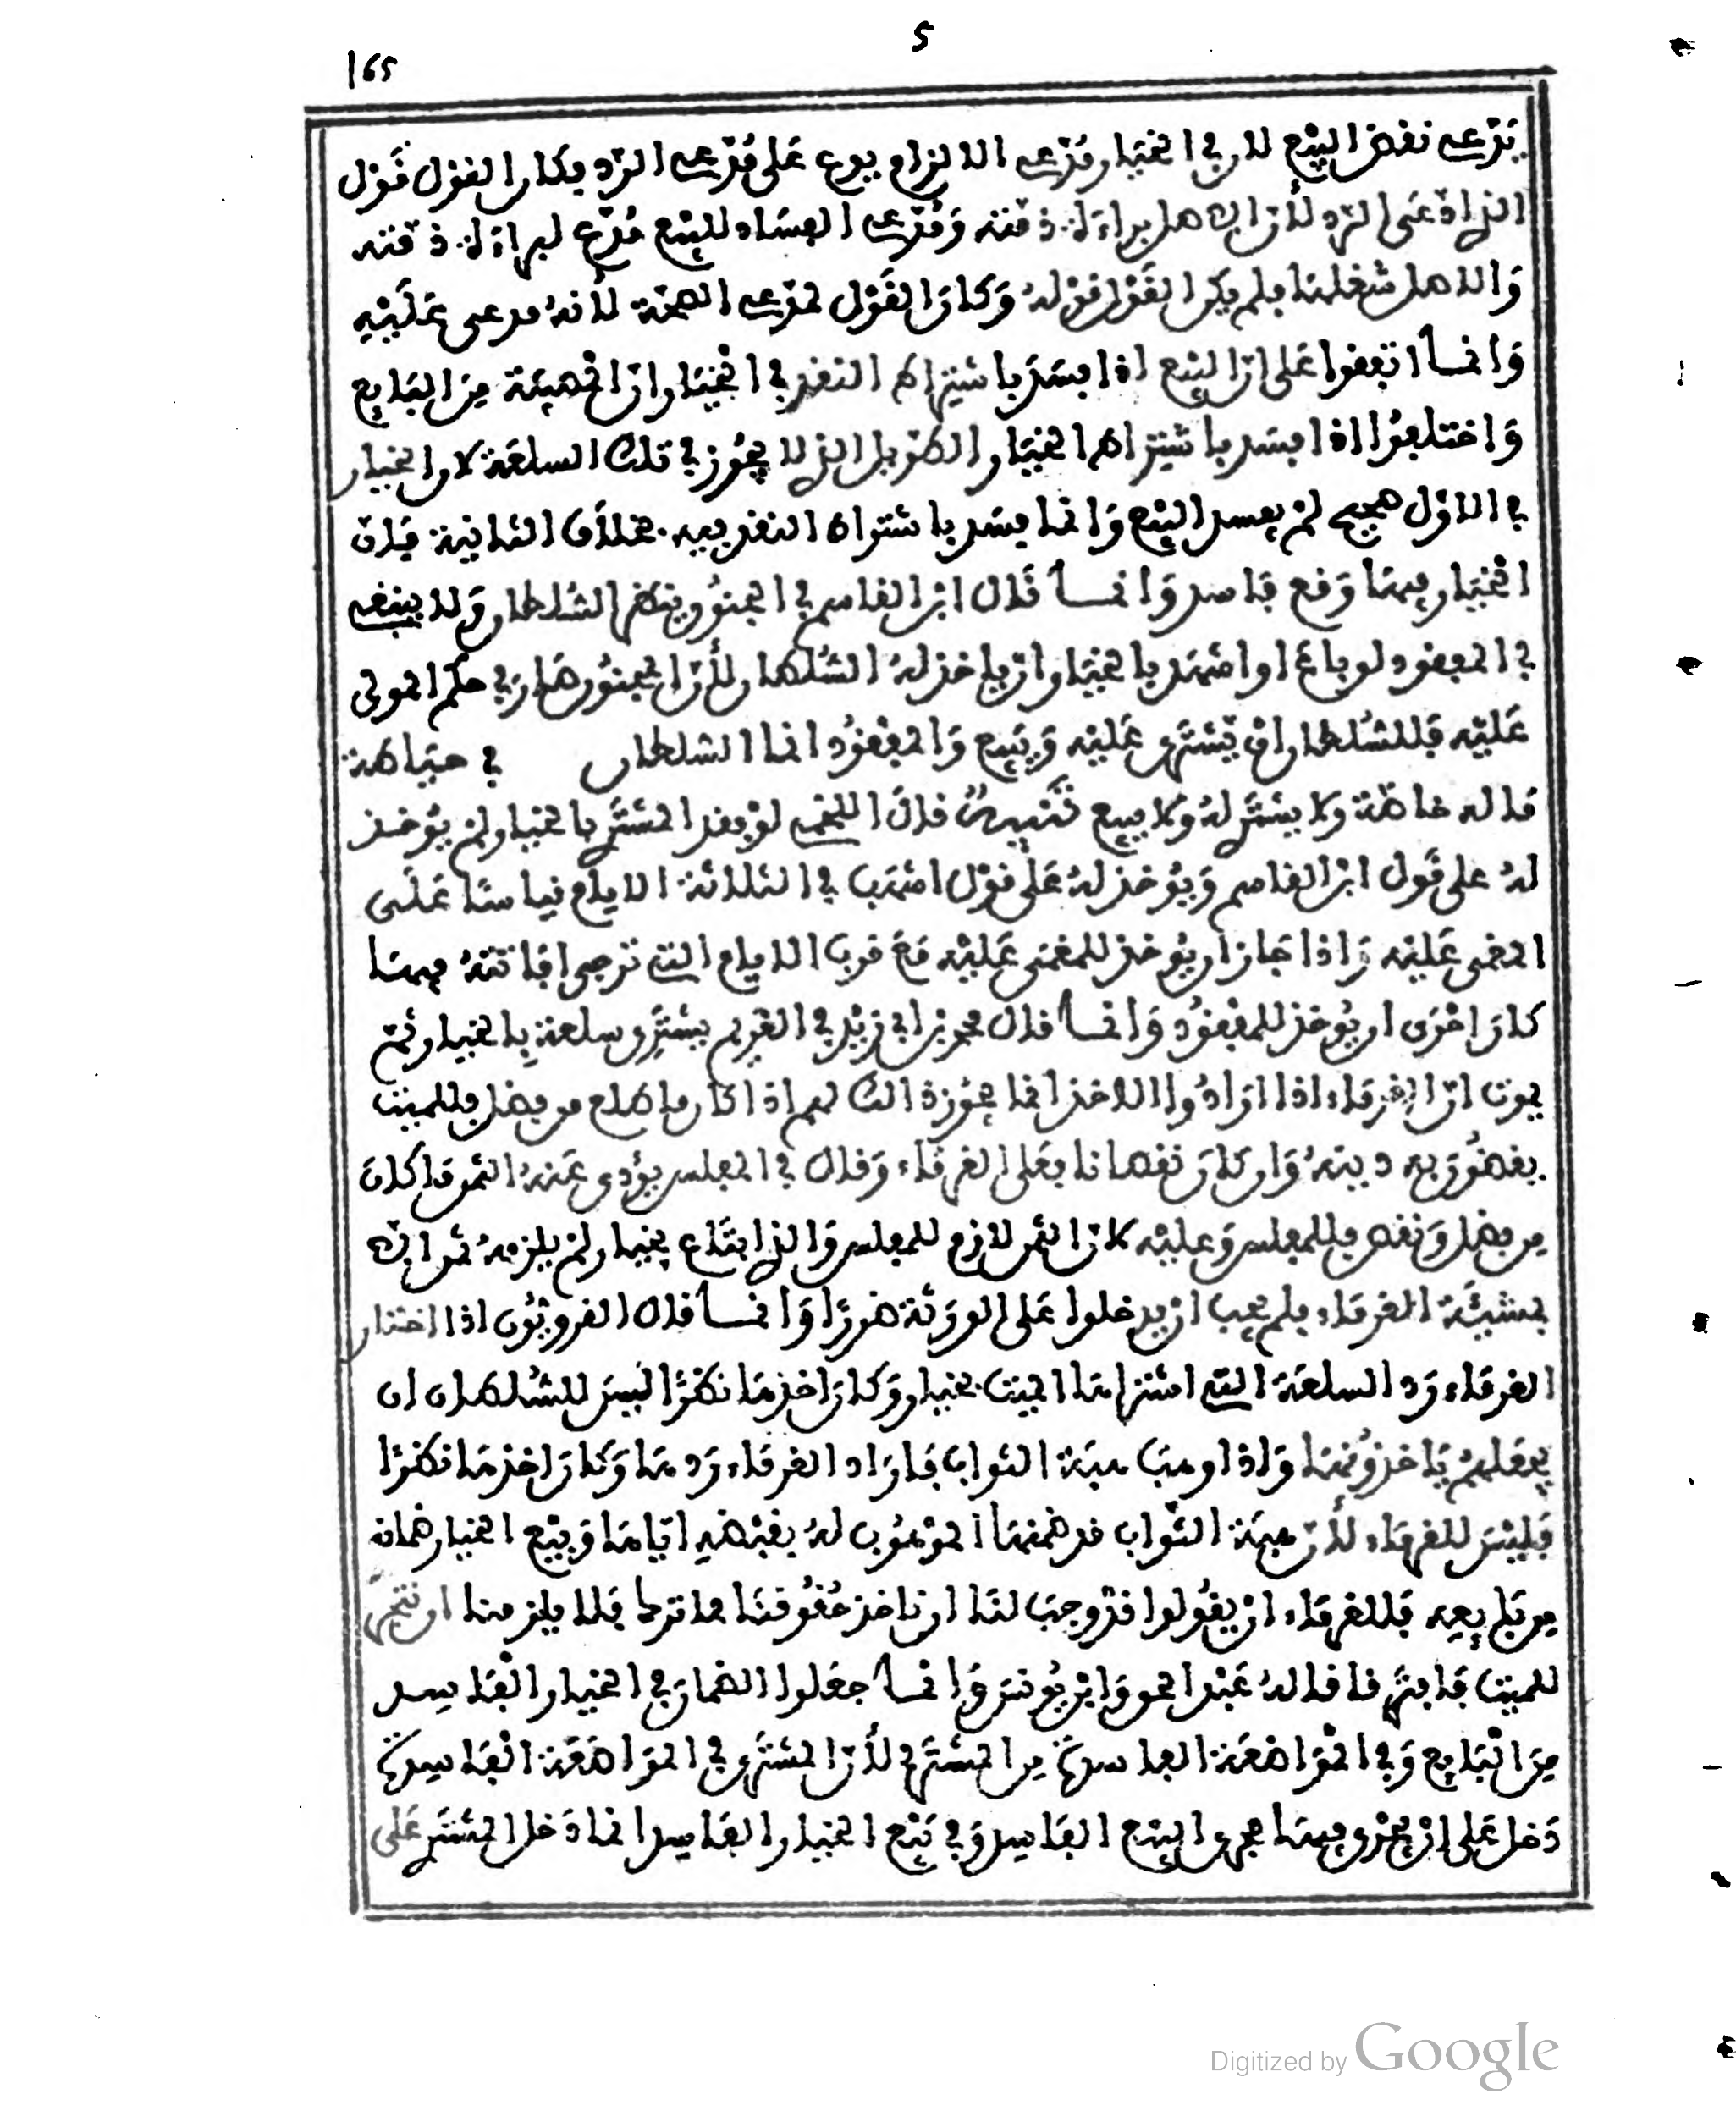 5
165
يَدّعي نقض البيع لان في الخيار مدّعي الالزام يدع على مُدّعي الرّد فكان القول قَوْل
الذي ادّعى الرد لأن الاصل براءة ذمّته وَمُدّعي الفسَاد للبيع مُدّع لبراءة ذمّته
وَالاصل شغلها فلم يكن القَوْل قوْلهُ وَكانَ القَوْل لمدّعي الصحّة لأنه مدعى عَلَيْه
وَانمَا اتفقوا عَلى انّ البيْع اذا فسَدَ باشتراط النقد في الخيَار ان المصيبَة مِنَ البَايع
وَاختلفوا اذا فسَد باشتراط الخيَار الطويل الذي لا يجُوز في تلك السلعَة لان الخيار
في الاوّل صحيح لم يفسد البيْع وَانما فسَد باشتراط النقد فيه بخلاف الثانية فان
الخيَار فيهَا وَقع فاسد وَانمَا قَال ابن القاسم في المجنُون ينظر السُّلطان وَلا ينبغي
في المفقود لو باع او اشترى بالخيَار ان ياخذ لهُ السُّلطان لأنّ المجنُون صَارَ في حكم المولى
عَليْه فللسُّلطان ان يّشتَري عَليْه وَيَبيع وَالمفقُود انما السلطان في حيَاطة
مَاله خاصّة وَلا يشتَر لهُ وَلا يبيع تَنْبيهٌ قال اللخمي لوْ فقد المشتَرِي بالخيار لم يُؤخذ
لهُ على قَول ابن القاسم وَيُؤخذ لهُ عَلى قوْل اشهب في الثلاثة الايام قياسًا عَلَى
المغمى عَليْه وَاذا جَاز ان يُوخذ للمغمى عَليْه مَعَ قرب الايام التي ترجى افاقتهُ فيهَا
كانَ احْرَى ان يُوخذ للمفقُود وَانمَا قال محمد بن ابي زيْد في الغَريم يشتَرِي سلعة بالخيار ثم
يموت انّ الغرمَاء اذا ارَادُوا الاخذ انما يجُوز ذالك لهم اذا كان ما طلع من فضل فللميت
يقضُونَ به دينهُ وَان كانَ نقصانا فعَلى الغرمَاء وَقال في المفلس يؤدى عَنهُ الثمن فما كان
من فضل وَنقص فللمفلس وَعليْه لانّ الثمن لازم للمفلس وَالذي ابتَاع بخيار لم يلزمهُ ثمن الا
بمشيئَة الغرمَاء فلم يجب ان يدخلوا عَلى الوَرَثة ضررًا وَانمَا قال القرويُّون اذا اختار
الغرمَاء رَد السلعَة التي اشتراهَا الميت بخيار وَكانَ اخذهَا نظرًا ليسَ للسُّلطان ان
يجعَلهمْ يَاخذُونهَا وَاذا وهبَ هبَة الثواب فارَاد الغرمَاء رَدهَا وَكانَ اخذهَا نظرًا
فليْسَ للغرمَاء لأنّ هبَة الثّواب قد ضمنهَا الموْهُوب لهُ بقبْضه ايّاهَا وَبيْع الخيار ضمانه
من بَايعه فللغرمَاء ان يقُولوا قدْ وجبَ لنَا ان ناخذ حقُوقنَا مما ترك فلا يلزمنا ان نتجر
للميت فافترقا قالهُ عَبْد الحق وَابن يُونس وَانمَا جعَلوا الضمانَ في الخيار الفَاسد
مِنَ البَايع وَفي الموَاضعَة الفاسدة من المشتَري لأنّ المشتَري في الموَاضعَة الفَاسدة
دَخل عَلى ان يجْرى فيهَا مجرى البيْع الفَاسد وَفي بَيْع الخيار الفَاسد انما دَخل المشتَرِي عَلى
Digitized by Google